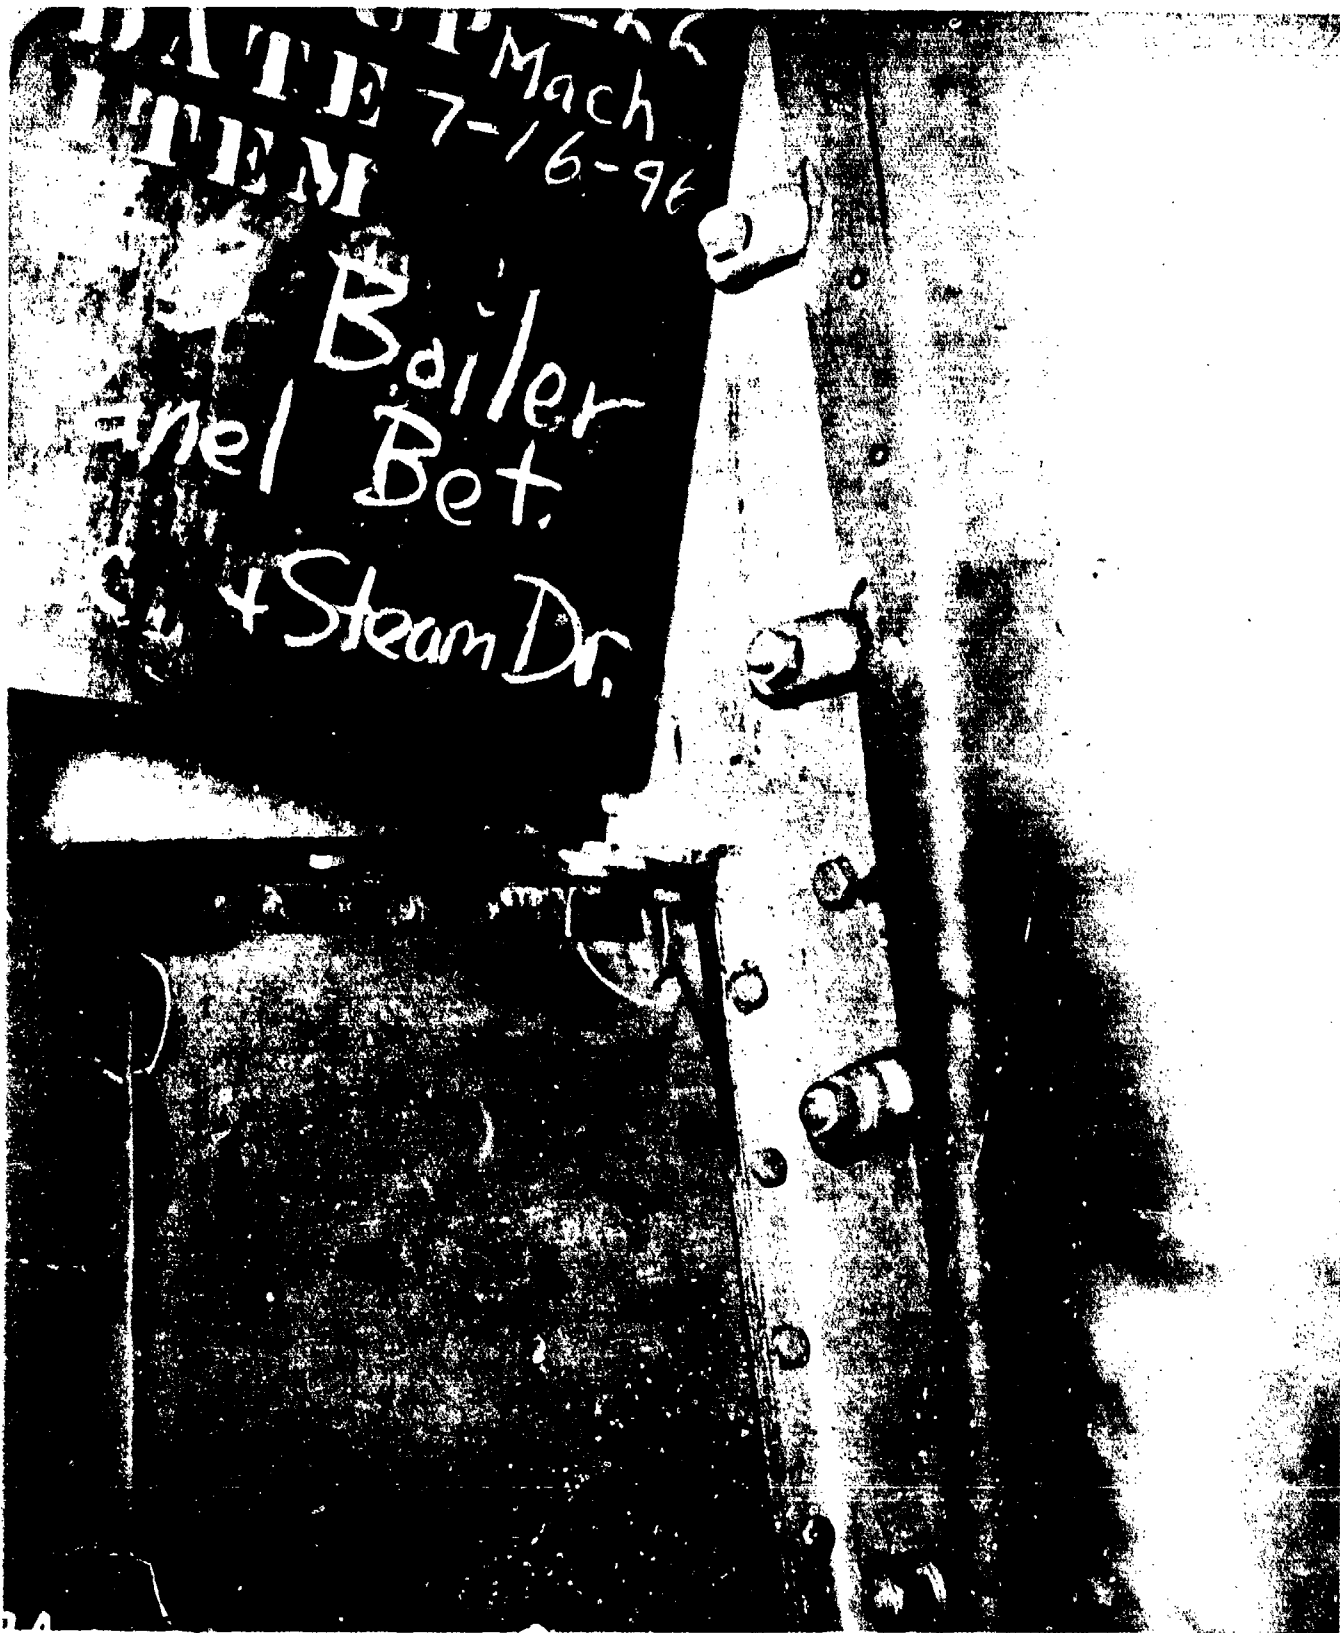 Mach
DATE 7-16-96
ITEM
Boiler
anel Bet.
& Steam Dr.